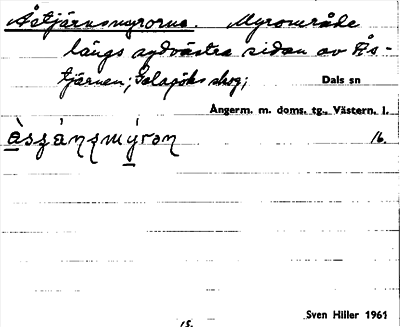 Åstjärnsmyrorna. Myrområde
längs sydvästra sidan av Ås-
tjärnen; Galasjös skog;
Dals sn
Ångerm. m. doms. tg., Västern. l.
16.
Sven Hiller 1961
15.